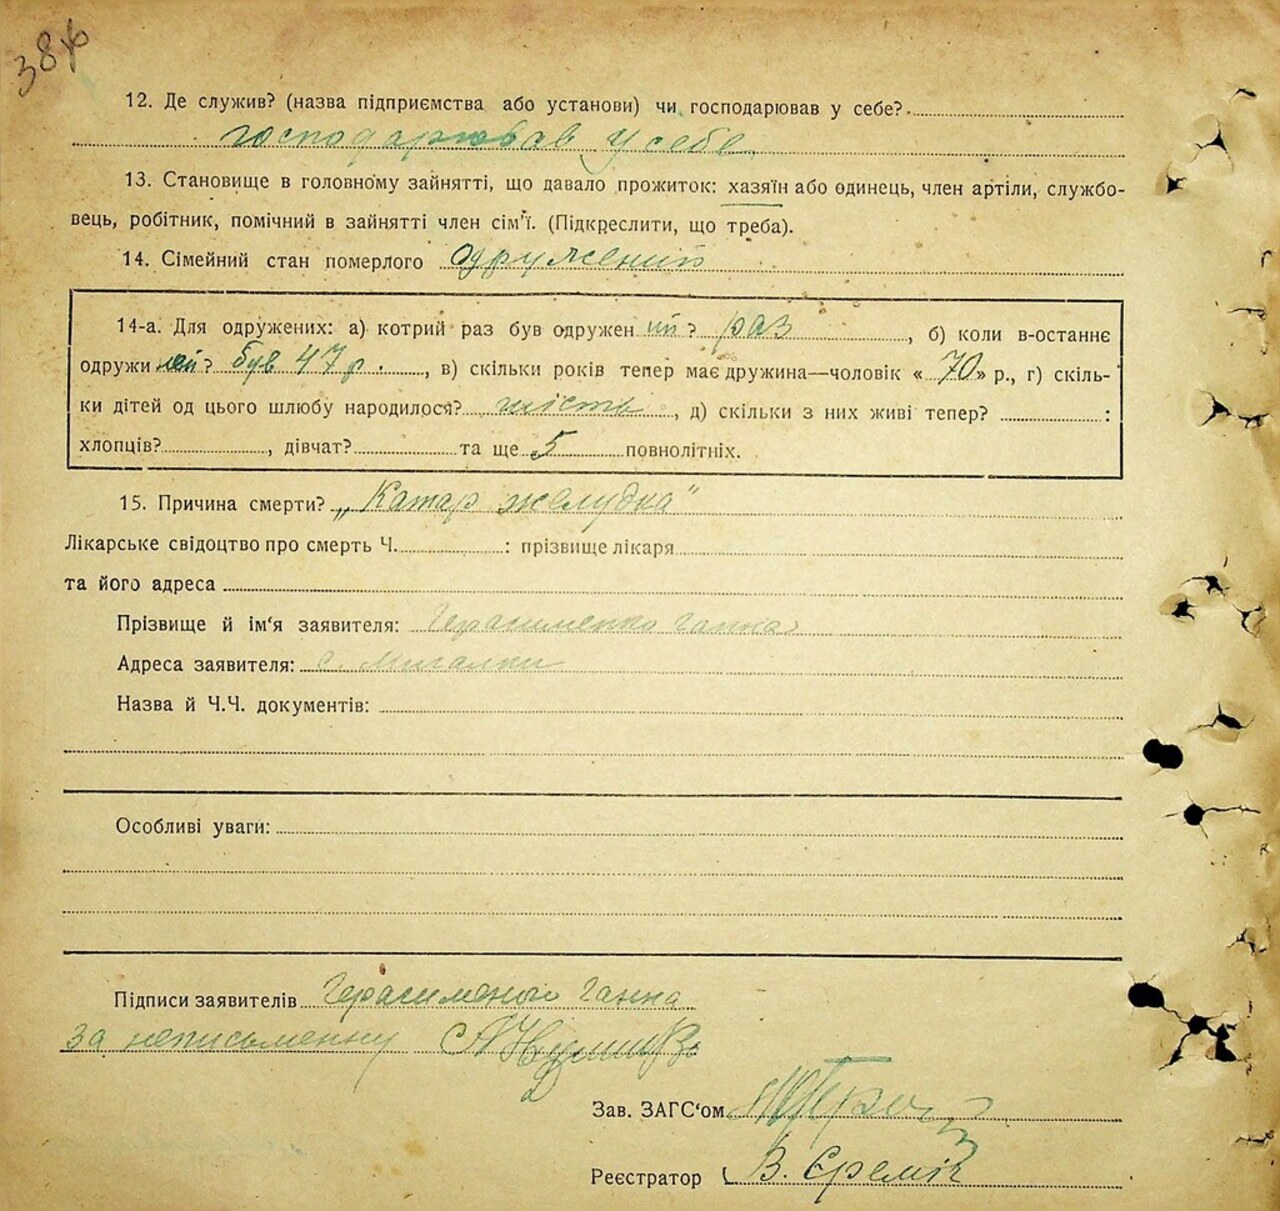 38
12. Де служив? (назва підприємства або установи) чи господарював у себе?
господарював у себе
13. Становище в головному зайнятті, що давало прожиток: хазяїн або одинець, член артіли, службо-
вець, робітник, помічний в зайнятті член сім'ї. (Підкреслити, що треба).
14. Сімейний стан померлого одружений
14-а. Для одружених: а) котрий раз був одружен ий? раз, б) коли в-останнє
одружи був 47 р., в) скільки років тепер має дружина—чоловік « 70 » р., г) скіль-
ки дітей од цього шлюбу народилося? шість, д) скільки з них живі тепер? :
хлопців?, дівчат? та ще 5 повнолітніх.
15. Причина смерти? „Катар желудка"
Лікарське свідоцтво про смерть Ч. : прізвище лікаря
та його адреса
Прізвище й ім'я заявителя: Герасименко Ганна
Адреса заявителя: с. Мигалки
Назва й Ч.Ч. документів:
Особливі уваги:
Підписи заявителів Герасименко Ганна
за неписьменну
Зав. ЗАГС'ом
Реєстратор В.